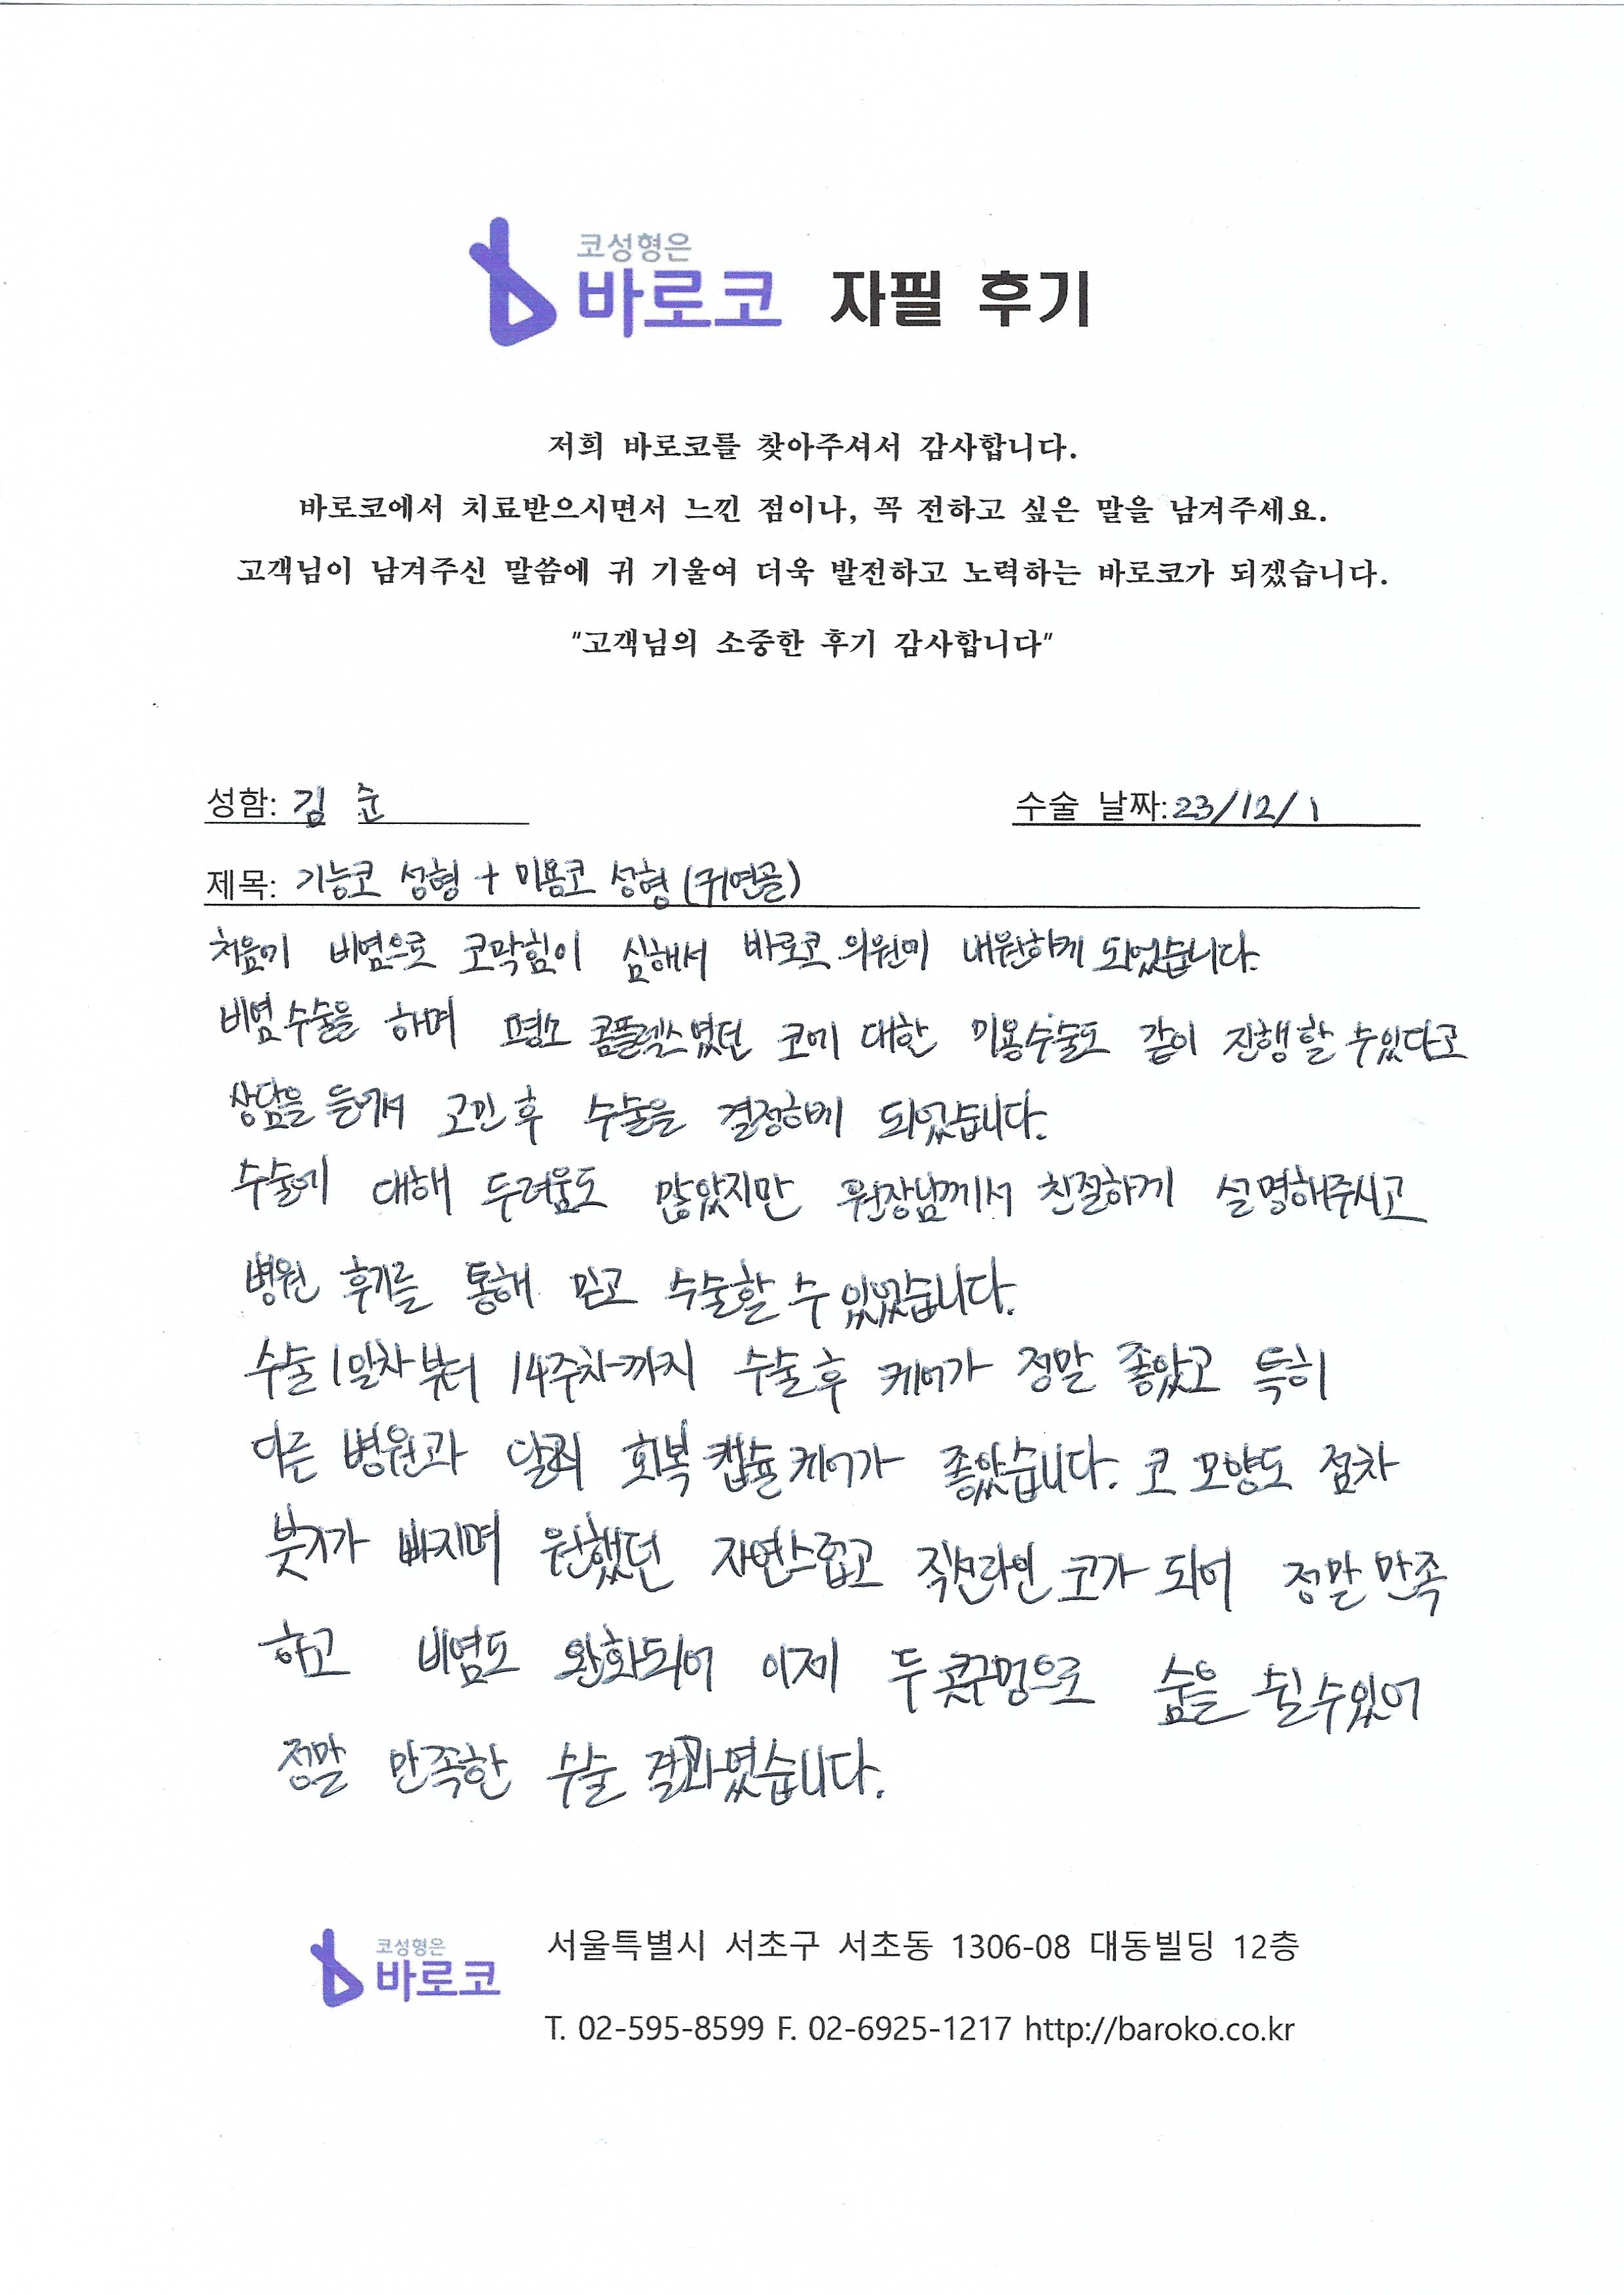 코성형은
바로코 자필 후기
저희 바로코를 찾아주셔서 감사합니다.
바로코에서 치료받으시면서 느낀 점이나, 꼭 전하고 싶은 말을 남겨주세요.
고객님이 남겨주신 말씀에 귀 기울여 더욱 발전하고 노력하는 바로코가 되겠습니다.
"고객님의 소중한 후기 감사합니다"
성함: 김 순 수술 날짜: 23/12/1
제목: 기능코 성형 + 미용코 성형 (귀연골)
처음에 비염으로 코막힘이 심해서 바로코 의원에 내원하게 되었습니다.
비염 수술을 하며 평소 콤플렉스였던 코에 대한 미용수술도 같이 진행할 수있다고
상담을 듣게서 고민 후 수술을 결정하게 되었습니다.
수술에 대해 두려움도 많았지만 원장님께서 친절하게 설명해주시고
병원 후기를 통해 믿고 수술할 수 있었습니다.
수술 1일차부터 14주차까지 수술 후 케어가 정말 좋았고 특히
다른 병원과 달리 회복 캡슐 케어가 좋았습니다. 코 모양도 점차
붓기가 빠지며 원했던 자연스럽고 직선라인 코가 되어 정말 만족
하고 비염도 완화되어 이제 두 콧구멍으로 숨을 쉴 수 있어
정말 만족한 수술 결과였습니다.
코성형은
바로코
서울특별시 서초구 서초동 1306-08 대동빌딩 12층
T. 02-595-8599 F. 02-6925-1217 http://baroko.co.kr